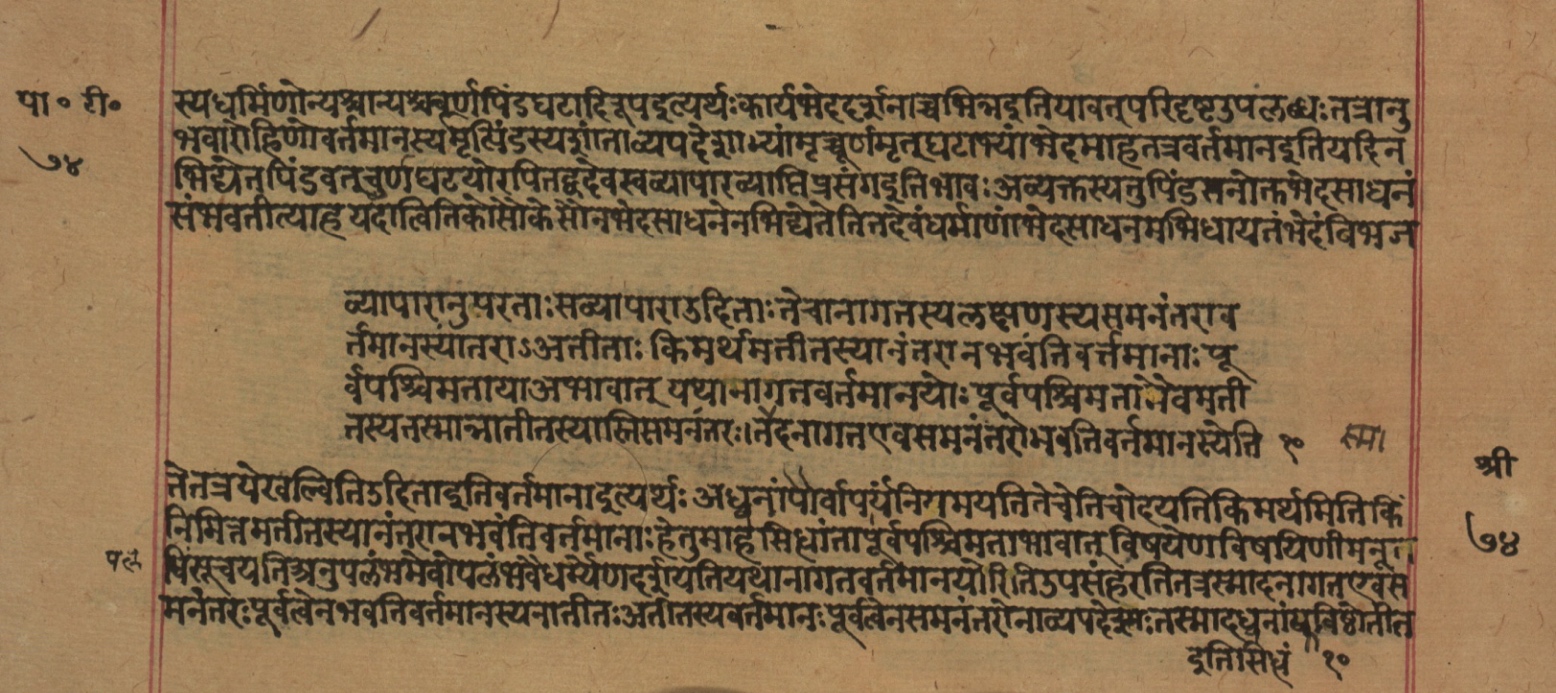 पा॰ टी॰
७४
स्यधर्मिणोन्यश्चान्यश्चचूर्णपिंडघटादिरूपइत्यर्थःकार्यभेददर्शनाच्चभिन्नइतियावत्परिदृष्टउपलब्धःतत्रानु
भवारोहिणोवर्तमानस्यमृत्पिंडस्यशांताव्यपदेशाभ्यांमृच्चूर्णमृत्घटाभ्यांभेदमाहतत्रवर्तमानइतियदिन
भिद्येतपिंडवत्चूर्णघटयोरपितद्वदेवस्वव्यापारव्याप्तिप्रसंगइतिभावःअव्यक्तस्यतुपिंडस्तनोक्तभेदसाधनं
संभवतीत्याहयदात्वितिकोसौकेसौनभेदसाधनेनभिद्येतेतितदेवंधर्माणांभेदसाधनमभिधायतंभेदंविभज
व्यापारानुपरताःसव्यापाराउदिताःतेचानागतस्यलक्षणस्यसमनंतराव
र्तमानस्यांतराऽअतीताः किमर्थमतीतस्यानंतरानभवंतिवर्तमानाःपू
र्वपश्चिमतायाअभावात् यथानागतवर्तमानयोःपूर्वपश्चिमतानैवमती
तस्यतस्मान्नातीतस्यास्तिसमनंतरः।तदनागतएवसमनंतरोभवतिवर्तमानस्येति १०
स्मा।
तेतत्रयेखल्वितिउदिताइतिवर्तमानाइत्यर्थः अध्वनांपौर्वापर्यंनियमयतितेचेतिचोदयतिकिमर्थमितिकिं
निमित्तमतीतस्यानंतरानभवंतिवर्तमानाःहेतुमाहसिद्धांतीपूर्वपश्चिमताभावात् विषयेणविषयिणीमनूप
लब्धिंसूचयतिअनुपलंभमेवोपलंभवैधर्म्येणदर्शयतियथानागतवर्तमानयोरितिउपसंहरतितत्रस्मादनागतएवस
मनंतरःपूर्वत्वेनभवतिवर्तमानस्यनातीतःअतीतस्यवर्तमानःपूर्वत्वेनसमनंतरोनाव्यपदेश्यःतस्मादध्वनांयविष्ठोतीत
इतिसिद्धं १०
श्री
७४